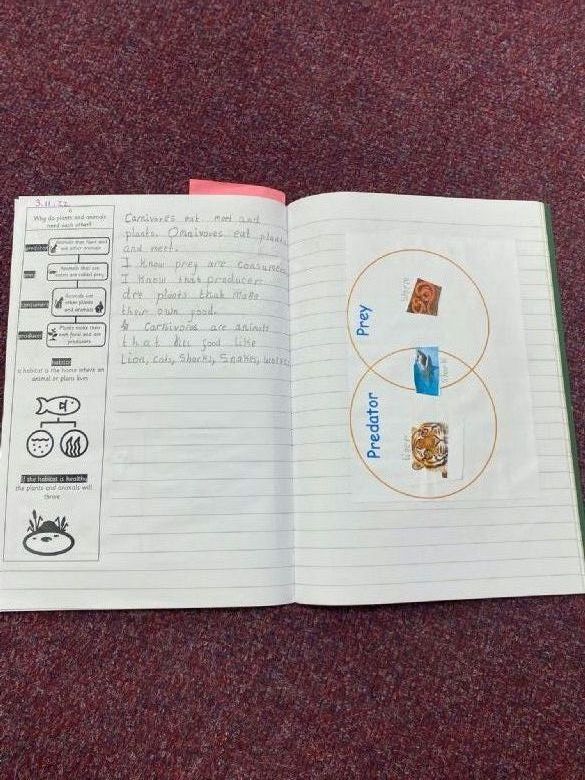 3.11.22
Why do plants and animals
need each other?
predator
Animals that hunt and
eat other animals
prey
Animals that are
eaten are called prey
consumers
Animals eat
other plants
and animals
producers
Plants make their
own food and are
producers
habitat
a habitat is the home where an
animal or plant lives
If the habitat is healthy
the plants and animals will
thrive
Carnivores eat meat and
plants. Omnivores eat plants
and meet.
I know prey are consumers
I know that producers
are plants that make
their own food.
Carnivores are animals
that food like
Lion, Cats, Sharks, Snakes,
Prey
Predator